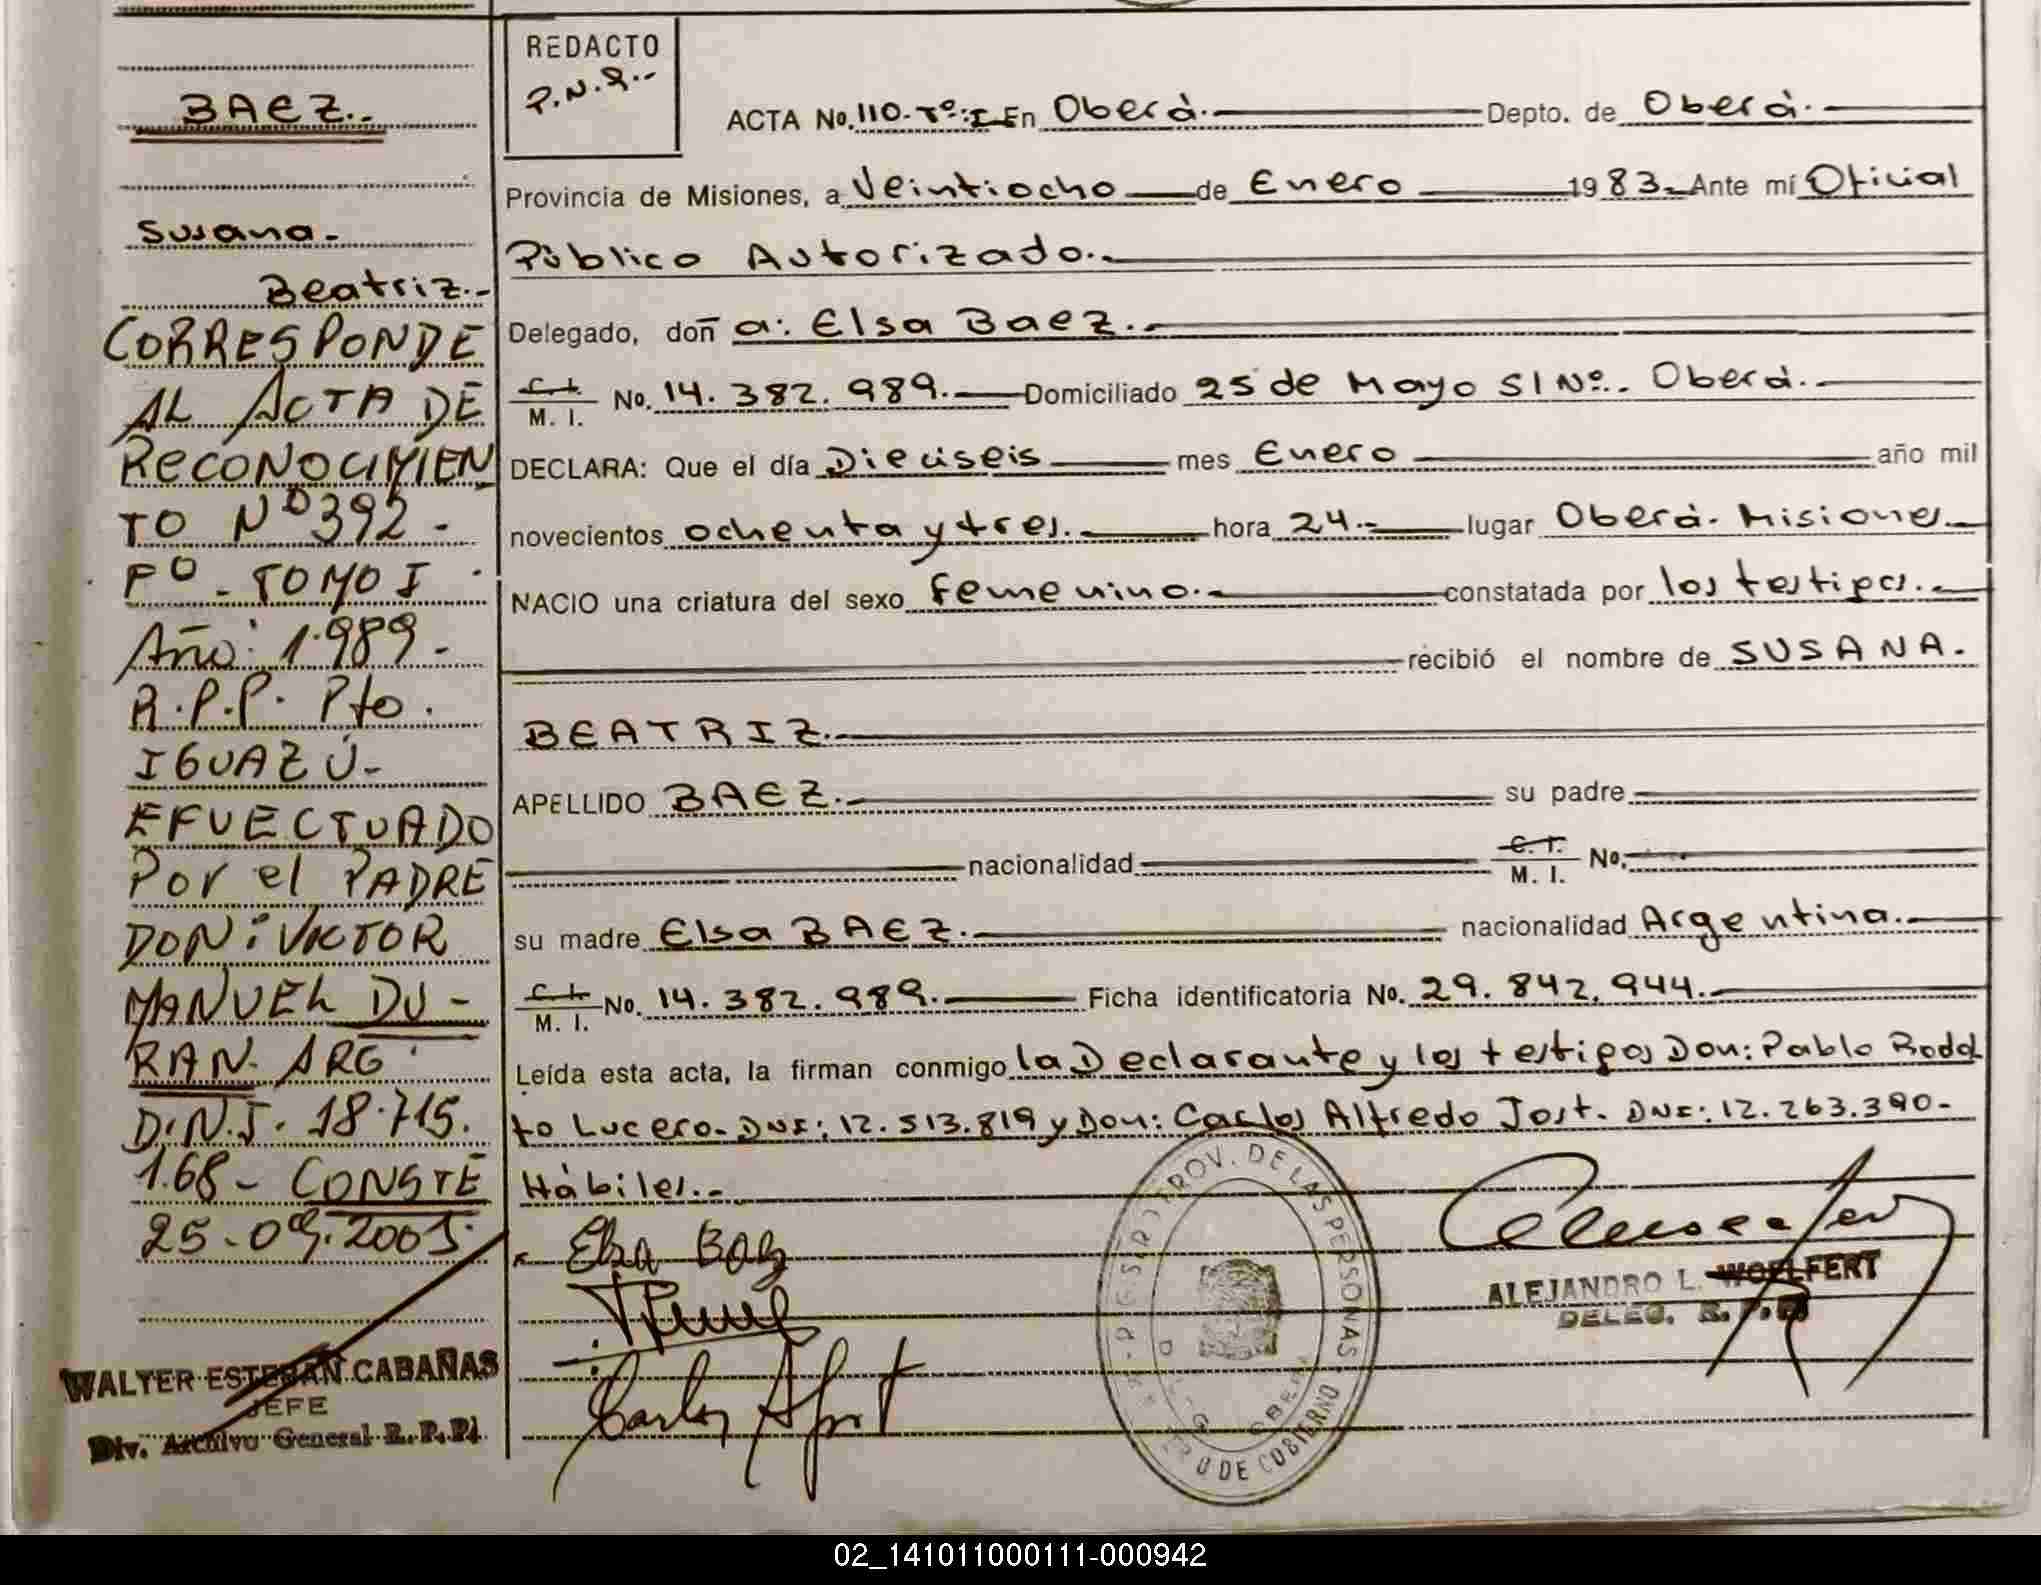 BAEZ.-
Susana.-
Beatriz.-
CORRESPONDE
AL ACTA DE
RECONOCIMIEN
TO Nº 392.-
Fº - TOMO I
Año: 1.989.-
R.P.P. Pto.
IGUAZÚ-
EFVECTUADO
Por el PADRE
DON: VICTOR
MANUEL DU-
RAN. ARG
D.N.I. 18.715.
168 - CONSTE
25-09-2005
WALTER ESTEBAN CABAÑAS
JEFE
Div. Archivo General R.P.P.
REDACTO
P.N.R.-
ACTA No. 110-Tº:I En Oberá. Depto. de Oberá.
Provincia de Misiones, a Veintiocho de Enero 1983. Ante mí Oficial
Público Autorizado.-
Delegado, don a: Elsa Baez.-
C. I.
M. I. No. 14.382.989. Domiciliado 25 de Mayo S/Nº.. Oberá.
DECLARA: Que el día Dieciseis mes Enero año mil
novecientos ochenta y tres. hora 24.- lugar Oberá. Misiones.
NACIO una criatura del sexo Femenino. constatada por los testigos.
recibió el nombre de SUSANA.
BEATRIZ.
APELLIDO BAEZ.- su padre
nacionalidad C. I.
M. I. No.
su madre Elsa BAEZ. nacionalidad Argentina.
C. I.
M. I. No. 14.382.989. Ficha identificatoria No. 29.842.944.
Leída esta acta, la firman conmigo la Declarante y los testigos Don: Pablo Rodol
fo Lucero. DNI: 12.513.819 y Don: Carlos Alfredo Jost. DNI: 12.263.390-
Hábiles.-
Elsa Baez
Carlos A Jost
PROV. DE LAS PERSONAS
ALEJANDRO L. WOELFERT
DELEG. R.P.P.
02_141011000111-000942